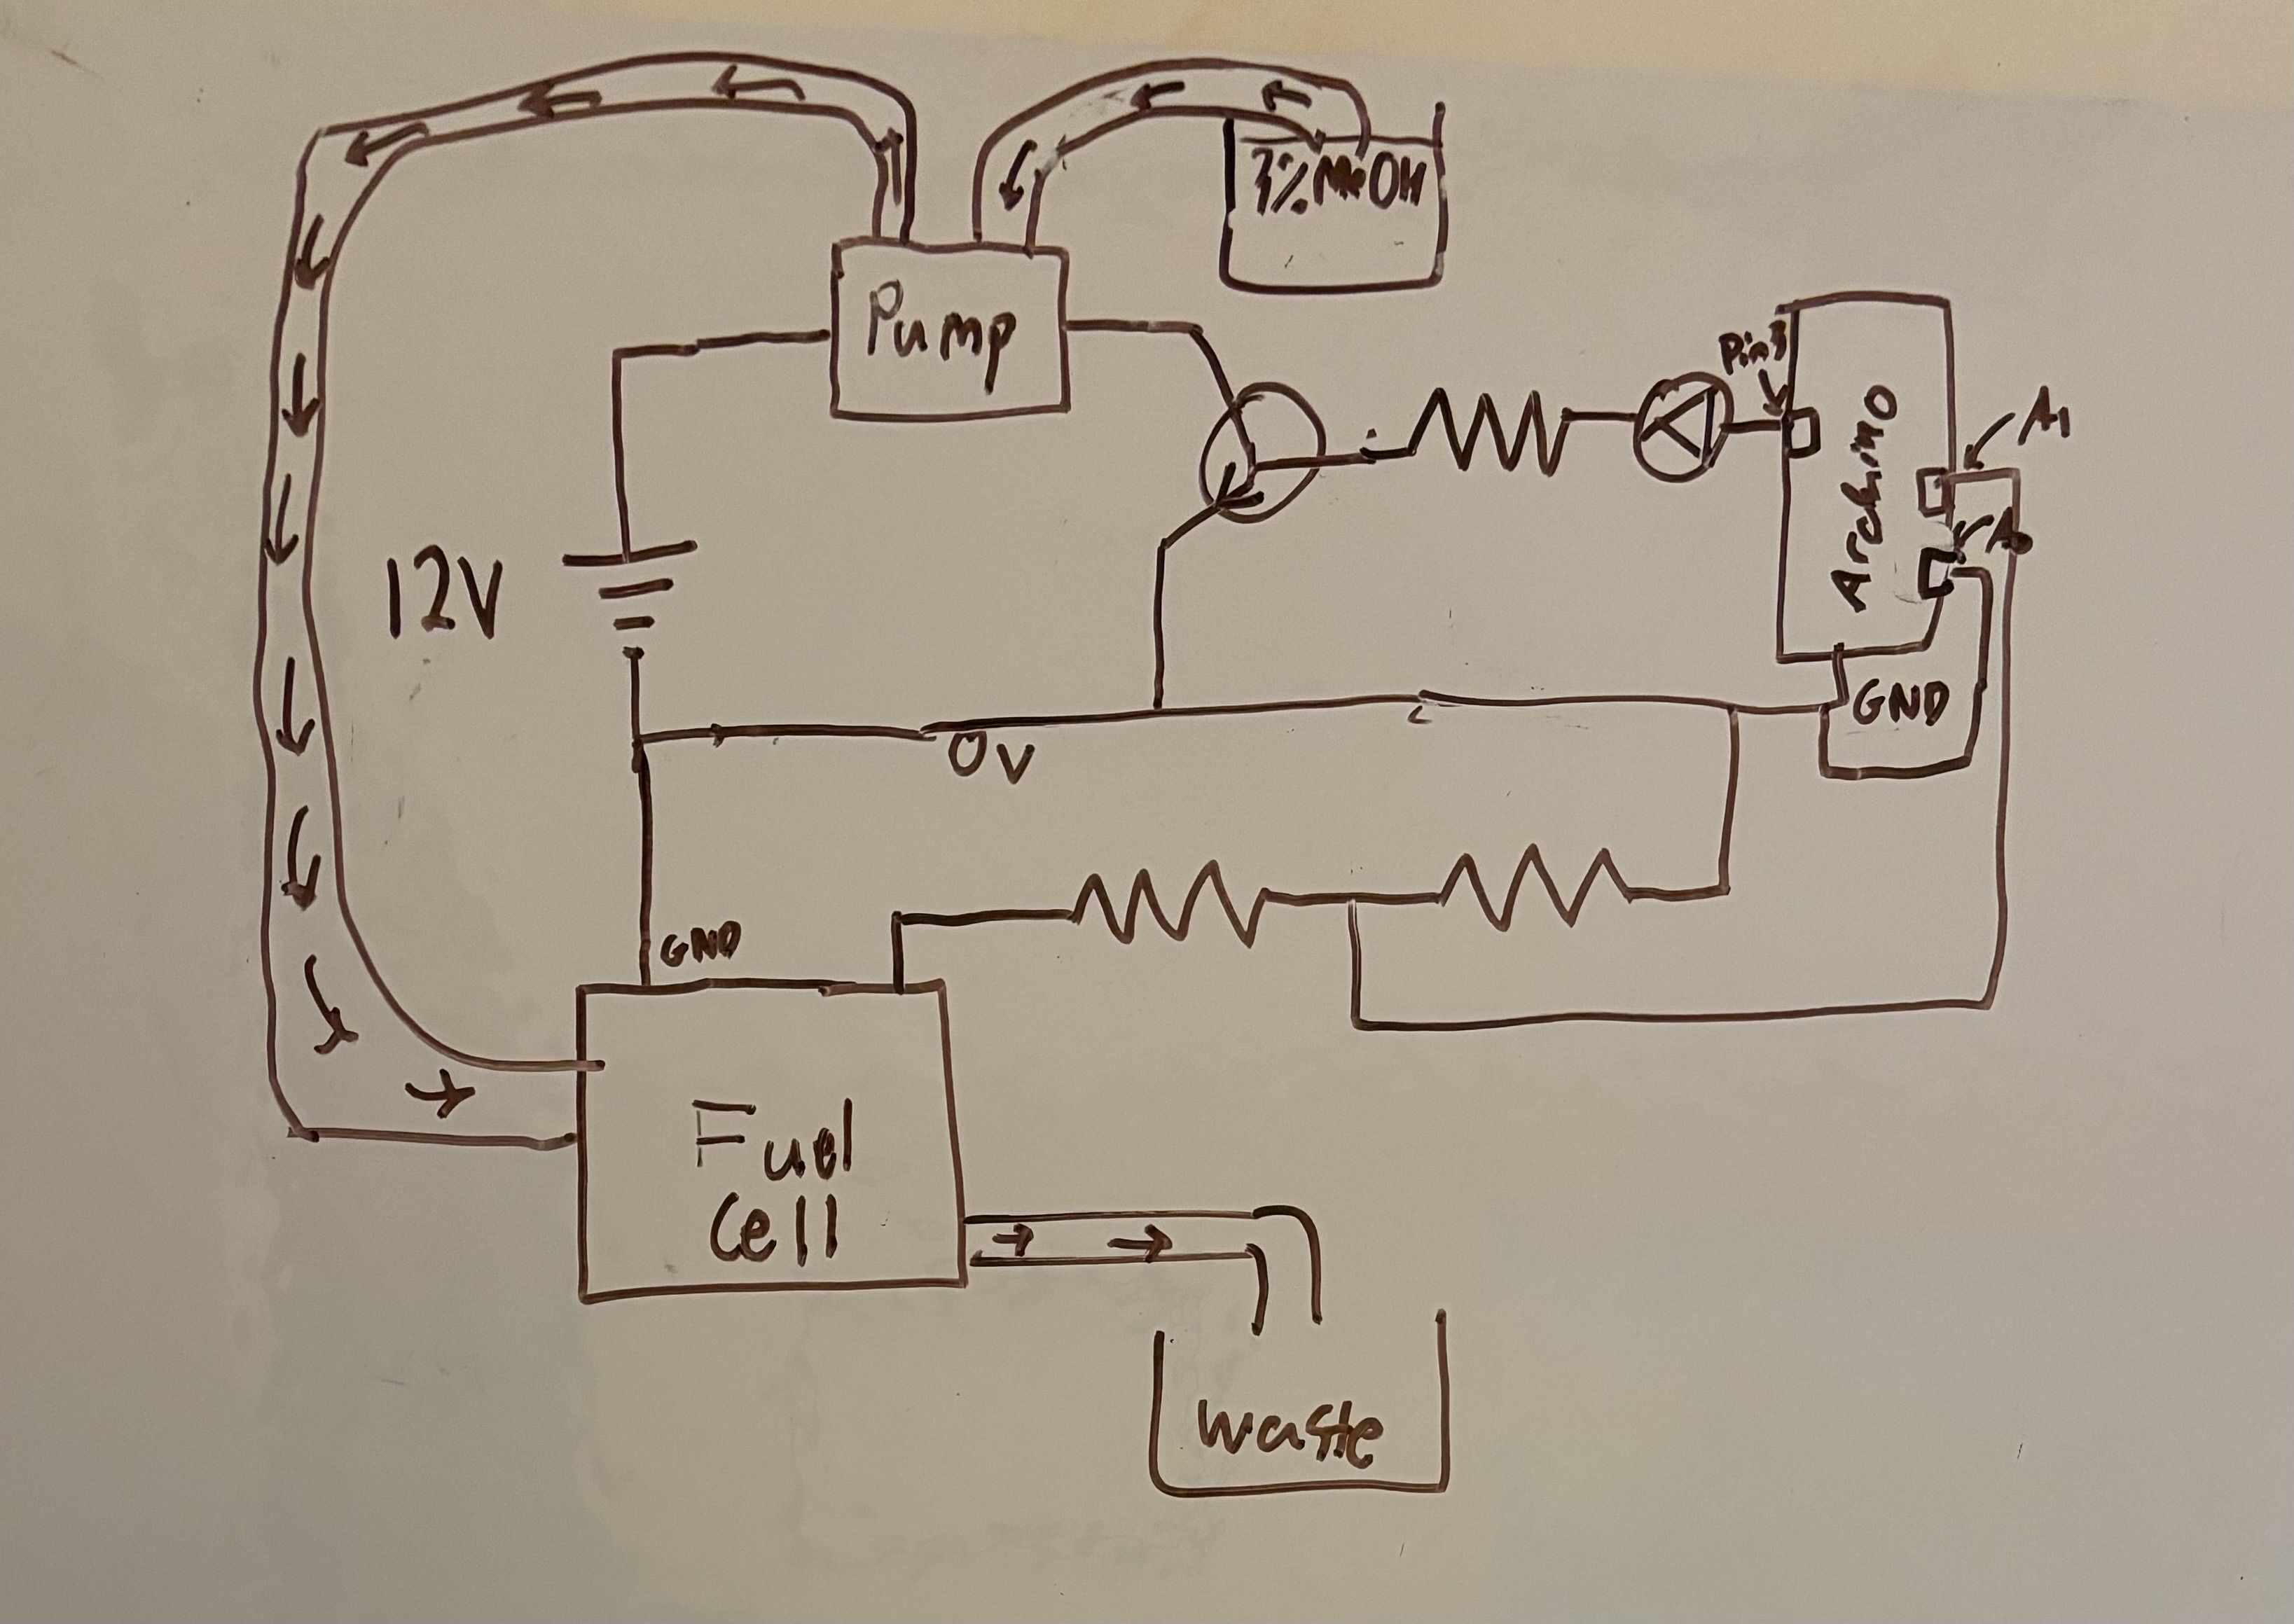 3% MeOH
Pump
Pin 3
Arduino
A1
A0
12V
GND
0V
GND
Fuel
Cell
waste